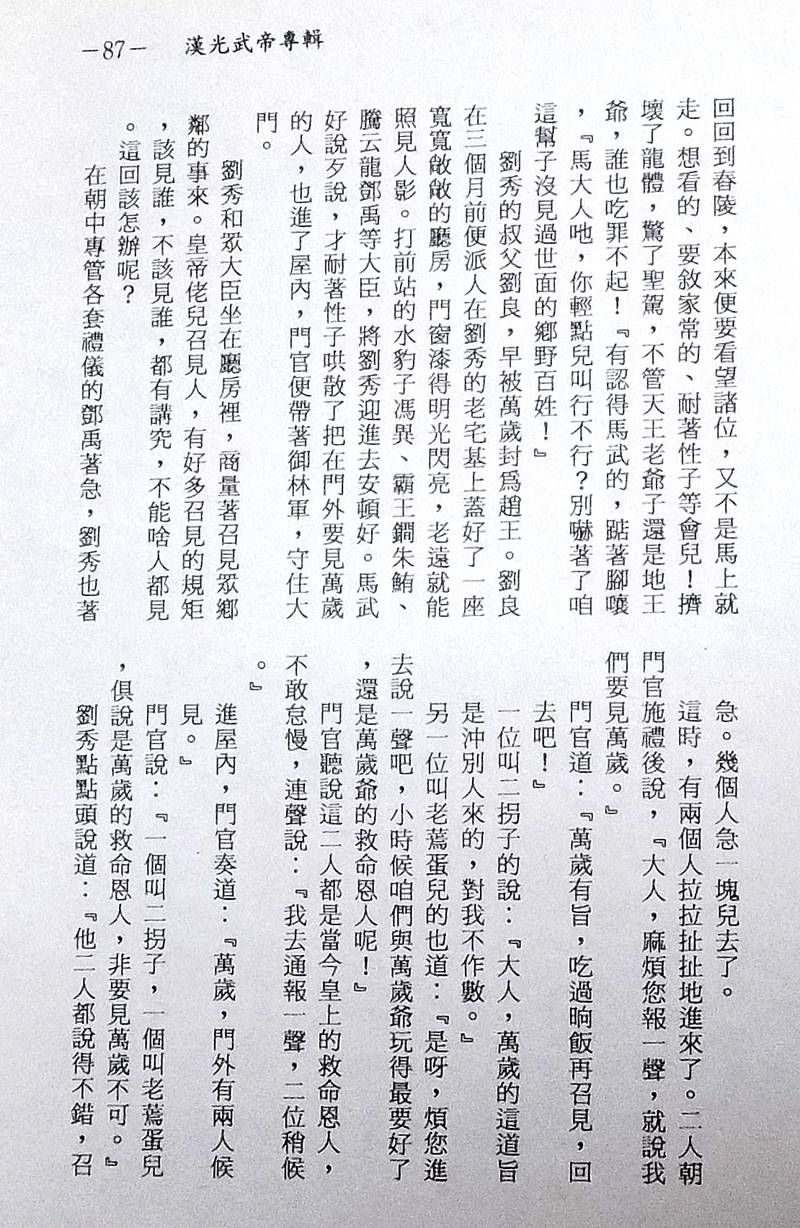 —87—　漢光武帝專輯
回回到舂陵，本來便要看望諸位，又不是馬上就
走。想看的、要敘家常的、耐著性子等會兒！擠
壞了龍體，驚了聖駕，不管天王老爺子還是地王
爺，誰也吃罪不起！『有認得馬武的，踮著腳嚷
，『馬大人吔，你輕點兒叫行不行？別嚇著了咱
這幫子沒見過世面的鄉野百姓！』
劉秀的叔父劉良，早被萬歲封爲趙王。劉良
在三個月前便派人在劉秀的老宅基上蓋好了一座
寬寬敞敞的廳房，門窗漆得明光閃亮，老遠就能
照見人影。打前站的水豹子馮異、霸王鐧朱鮪、
騰云龍鄧禹等大臣，將劉秀迎進去安頓好。馬武
好說歹說，才耐著性子哄散了把在門外要見萬歲
的人，也進了屋內，門官便帶著御林軍，守住大
門。
劉秀和眾大臣坐在廳房裡，商量著召見眾鄉
鄰的事來。皇帝佬兒召見人，有好多召見的規矩
，該見誰，不該見誰，都有講究，不能啥人都見
。這回該怎辦呢？
在朝中專管各套禮儀的鄧禹著急，劉秀也著
急。幾個人急一塊兒去了。
這時，有兩個人拉拉扯扯地進來了。二人朝
門官施禮後說，『大人，麻煩您報一聲，就說我
們要見萬歲。』
門官道：『萬歲有旨，吃過晌飯再召見，回
去吧！』
一位叫二拐子的說：『大人，萬歲的這道旨
是沖別人來的，對我不作數。』
另一位叫老蔫蛋兒的也道：『是呀，煩您進
去說一聲吧，小時候咱們與萬歲爺玩得最要好了
，還是萬歲爺的救命恩人呢！』
門官聽說這二人都是當今皇上的救命恩人，
不敢怠慢，連聲說：『我去通報一聲，二位稍候
。』
進屋內，門官奏道：『萬歲，門外有兩人候
見。』
門官說：『一個叫二拐子，一個叫老蔫蛋兒
，俱說是萬歲的救命恩人，非要見萬歲不可。』
劉秀點點頭說道：『他二人都說得不錯，召